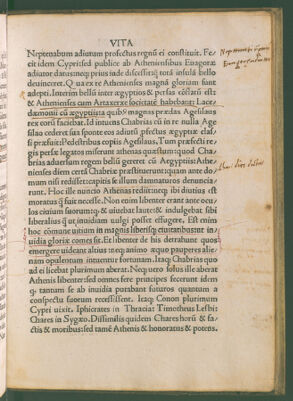 VITA
Neptenabum adiutum profectus regnũ ei constituit. Fe
cit idem Cypri: sed publice ab Atheniensibus Euagoræ
adiutor datus: neq; prius inde discessit: q̃ totã insulã bello
deuinceret. Qua ex re Athenienses magnã gloriam sunt
adepti. Interim bellũ inter ægyptios & persas cõflatũ est
& Athenienses cum Artaxerxe societatẽ habebant: Lace
dæmonii cũ ægyptiis: a quib⁹ magnas prædas Agesilaus
rex eorũ faciebat. Id intuens Chabrias cũ in re nulla Age
silao cederet sua sponte eos adiutũ pfectus ægyptiæ clas
si præfuit: Pedestribus copiis Agesilaus. Tum præfecti re
gis persæ legatos misere athenas questum: quod Cha
brias aduersum regem bellũ gereret cũ Aegyptiis: Athe
nienses diem certã Chabriæ præstituerunt: quam ante do
mum nisi redisset: capitis se illum damnaturos denuncia
runt. Hoc ille nuncio Athenas rediit: neq; ibi diutius est
moratus q̃ fuit necesse. Non enim libenter erant ante ocu
los ciuium suorum: q⁊ & uiuebat laute: & indulgebat sibi
liberalius q̃ ut inuidiam uulgi posset effugere. Est enim
hoc cõmune uitium in magnis liberisq; ciuitatibus: ut in
uidia gloriæ comes sit. Et libenter de his detrahunt quos
emergere uideant altius: neq; animo æquo pauperes alie
nam opulentium intuentur fortunam. Itaq; Chabrias quo
ad ei licebat plurimum aberat. Neq; uero solus ille aberat
Athenis libenter: sed omnes fere principes fecerunt idem
q⁊ tantum se ab inuidia putabant futuros quantum a
conspectu suorum recessissent. Itaq; Conon plurimum
Cypri uixit. Iphicrates in Thracia: Timotheus Lesbi:
Chares in Sygæo. Dissimilis quidem Chares horũ & fa
ctis & moribus: sed tamẽ Athenis & honoratus & potens.